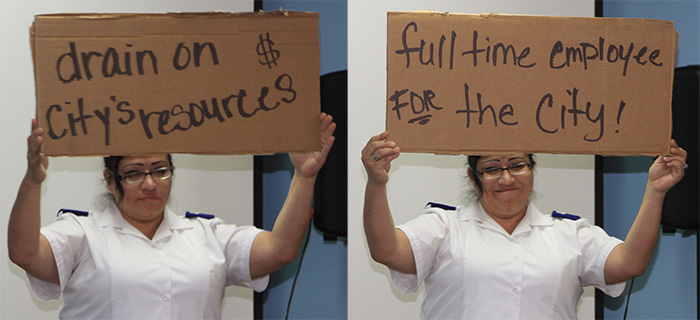 drain on $
City's resources
full time employee
FOR the City!